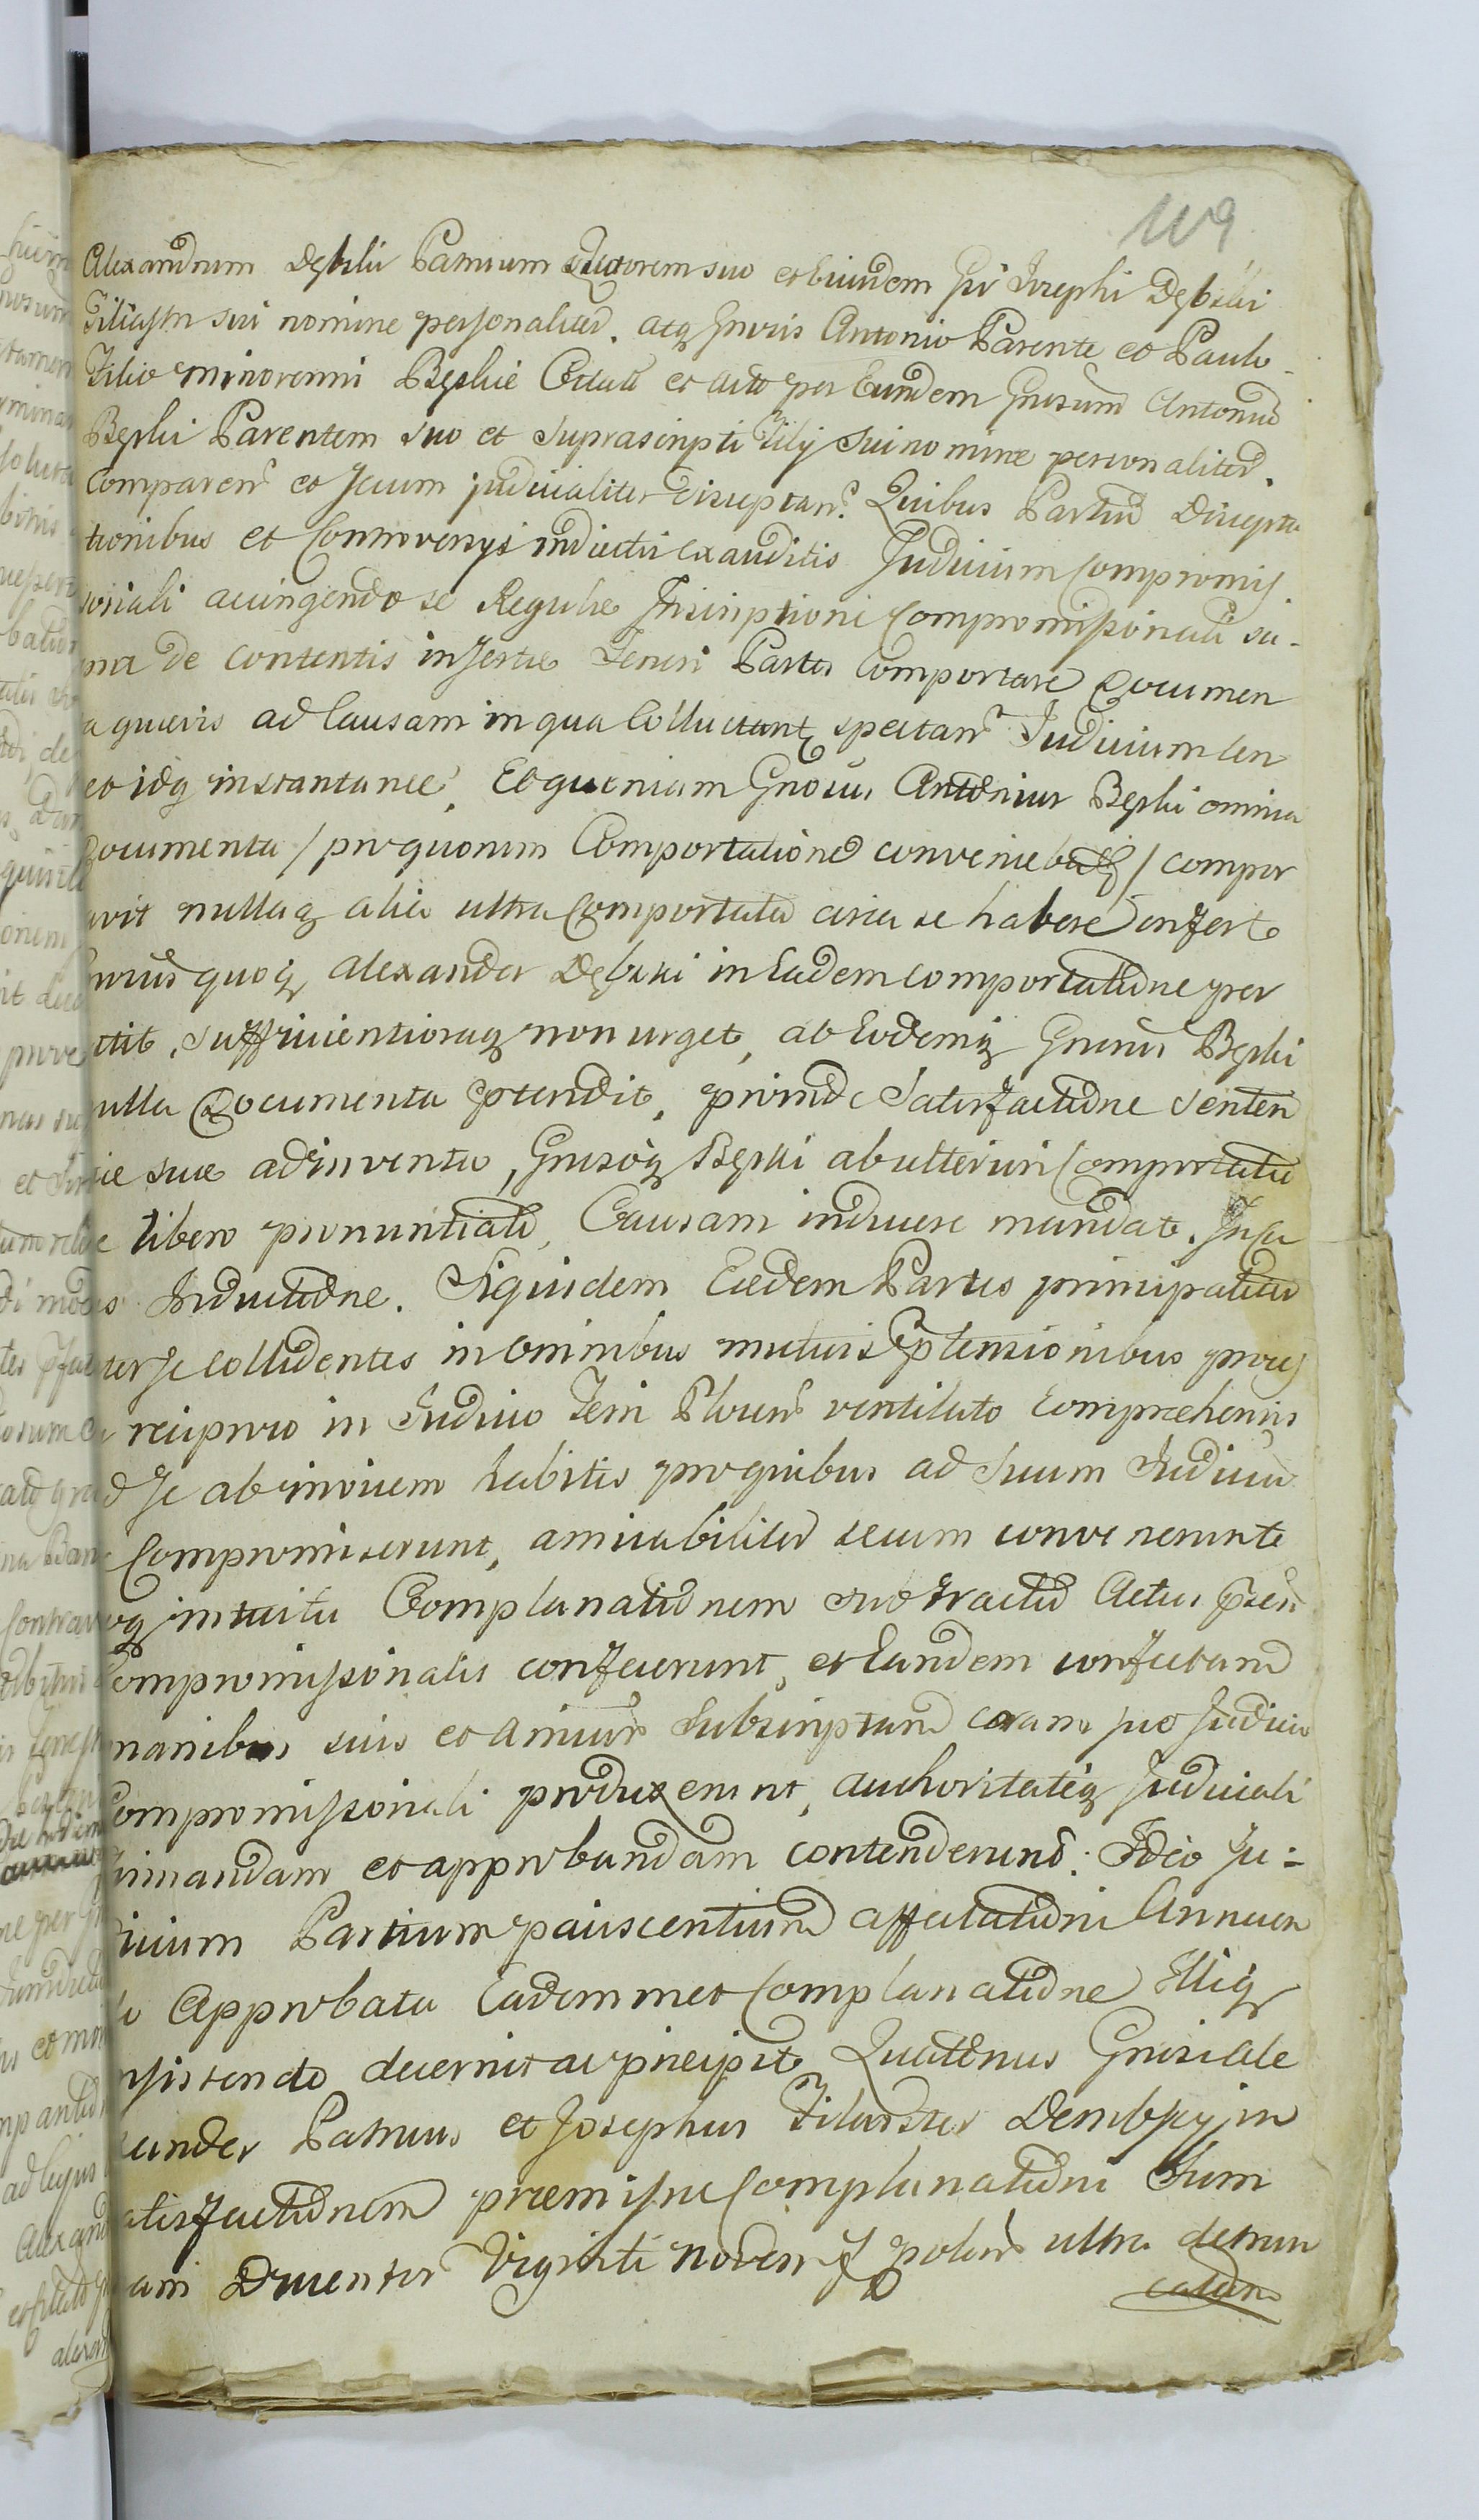 119
Alexandrum Dębski Patruum Tutorem suo et Eiusdem Gsi Josephi Dębski
Filiastri sui nomine personaliter. atq Gnrsis Antonio Parente et Paulo
Filio minorenni Bęskie Citatis et Acto per Eundem Gnrsum Antonium
Bęski Parentem suo et suprascripti Filij sui nomine personaliter
Comparen et secum judicialiter disceptan. Quibus Partium Discepta
tionibus et Controversys inductis exauditis Judicium Compromis
soriali accingendo se Regulæ Inscriptioni Compromissionali su-
pra de contentis insertæ Teneri Partes Comportare Documen
a quævis ad Causam in qua Colluctantq spectan Judicium cen
et idq instantanee, Et quoniam Gnosus Antonius Bęski omnia
Documenta / pro quorum Comportatione conveniebatq / compor
avit nullaq alia ultra Comportata circa se habere infert
nrsus quoq Alexander Dębski in Eadem comportatione per
ttit, sufficientioraq non urget, ab Eodemq Gnrsus Bęski
ulla Documenta ptendit, proinde Satisfactione senten
iæ suæ adinventa, Gnrsoq Bęski ab ulteriori Comportatio
e libero pronuntiato, Causam inducere mandat. In cu
s Inductione. Siquidem Eædem Partes principaliter
ter se Collidentes in omnibus mutuis ptensionibus proces
reciproco in Judicio Terri Plocen ventilato comprehensis
d se ab invicem habitis pro quibus ad suum Judicium
Compromiserunt, amicabiliter secum convenerunt
oq intuitu Complanationem sub tractu Actus psen
Compromissionalis confecerunt, et Eandem confectam
manibus suis et Amicor Subscriptam coram suo Judicio
Compromissionali produxerunt, authoritateq Judiciali
firmandam et approbandam contenderunt: Ideo Ju-
dicium Partium paciscentium affectationi Annuen
o Approbata Eademmet Complanatione Illiq
nsistendo decernit ac pcipit Quatenus Gnrsi Ale
xander Patruus et Josephus Filiaster Dembscy in
atisfactionem præmissæ Complanationi Sum
am Ducentor Viginti novem f polon ultra detrun
catam